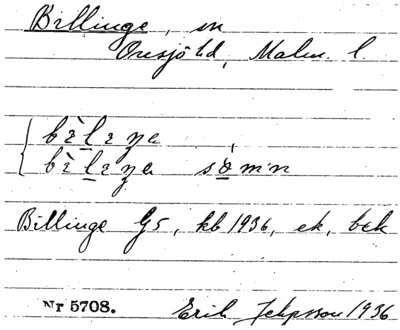 Billinge, sn
Onsjö hd, Malm. l.
bìlıŋa
bìlıŋa sómn
Billinge GS, kb 1936, ek, bek
Nr 5708. Erik Jeppsson 1936